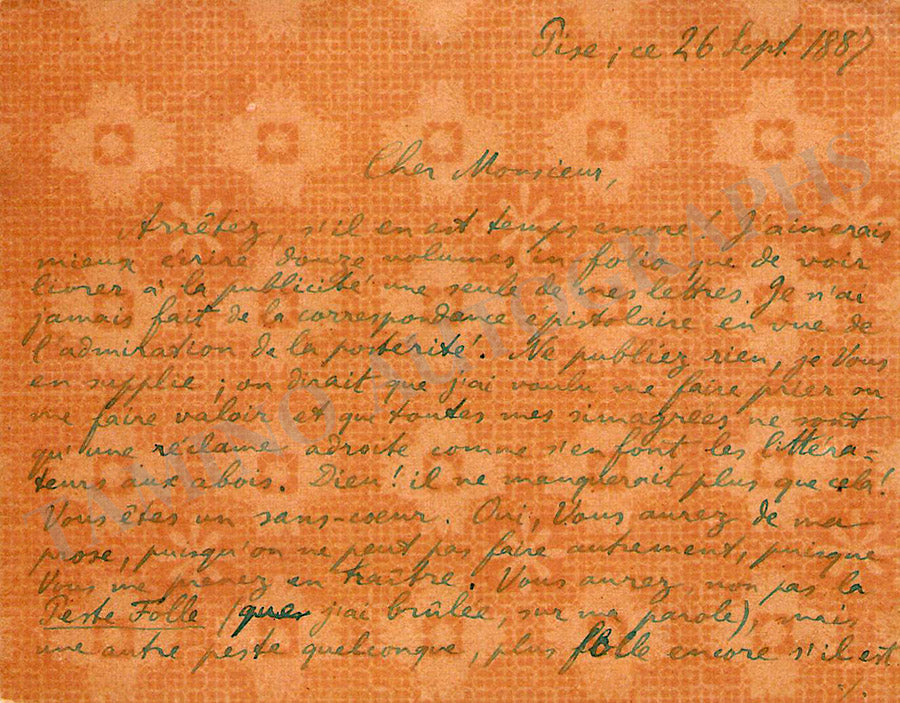 Pise, ce 26 Sept. 1887
Cher Monsieur,
Arrêtez, s'il en est temps encore! J'aimerais
mieux écrire douze volumes in folio que de voir
livrer à la publicité une seule de mes lettres. Je n'ai
jamais fait de la correspondance épistolaire en vue de
l'admiration de la postérité. Ne publiez rien, je Vous
en supplie; on dirait que j'ai voulu me faire prier ou
me faire valoir et que toutes mes simagrées ne sont
qu'une réclame adroite comme s'en font les littéra=
teurs aux abois. Dieu! il ne manquerait plus que cela!
Vous êtes un sans-coeur. Oui, Vous aurez de ma
prose, puisqu'on ne peut pas faire autrement, puisque
Vous me prenez en traître. Vous aurez, non pas la
Peste Folle (que j'ai brûlée, sur ma parole), mais
une autre peste quelconque, plus folle encore s'il est
./.
TAMINO AUTOGRAPHS